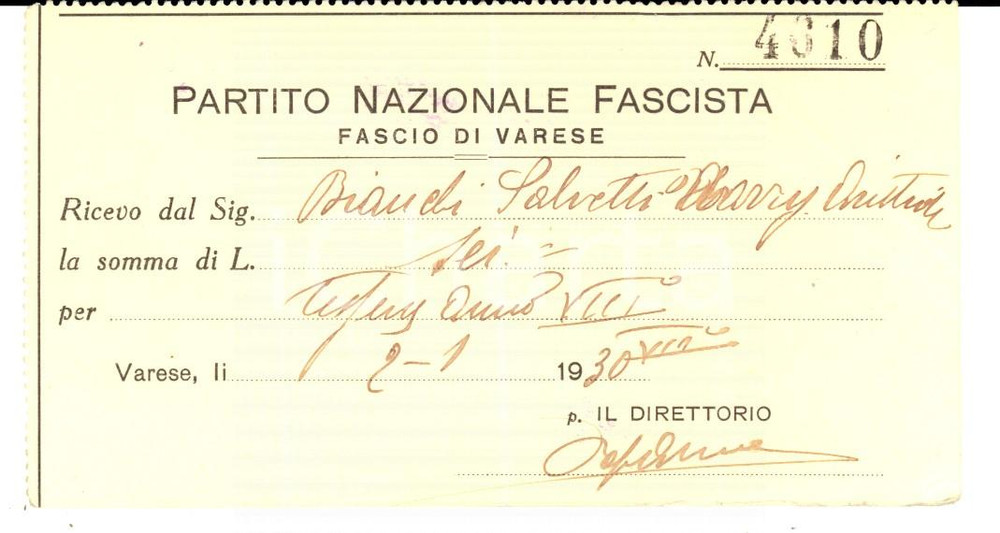 N. 4610
PARTITO NAZIONALE FASCISTA
FASCIO DI VARESE
Ricevo dal Sig. Bianchi Salvetti
la somma di L. sei =
per Tessera Anno VIII°
Varese, li 2-1 1930 VIII°
p. IL DIRETTORIO